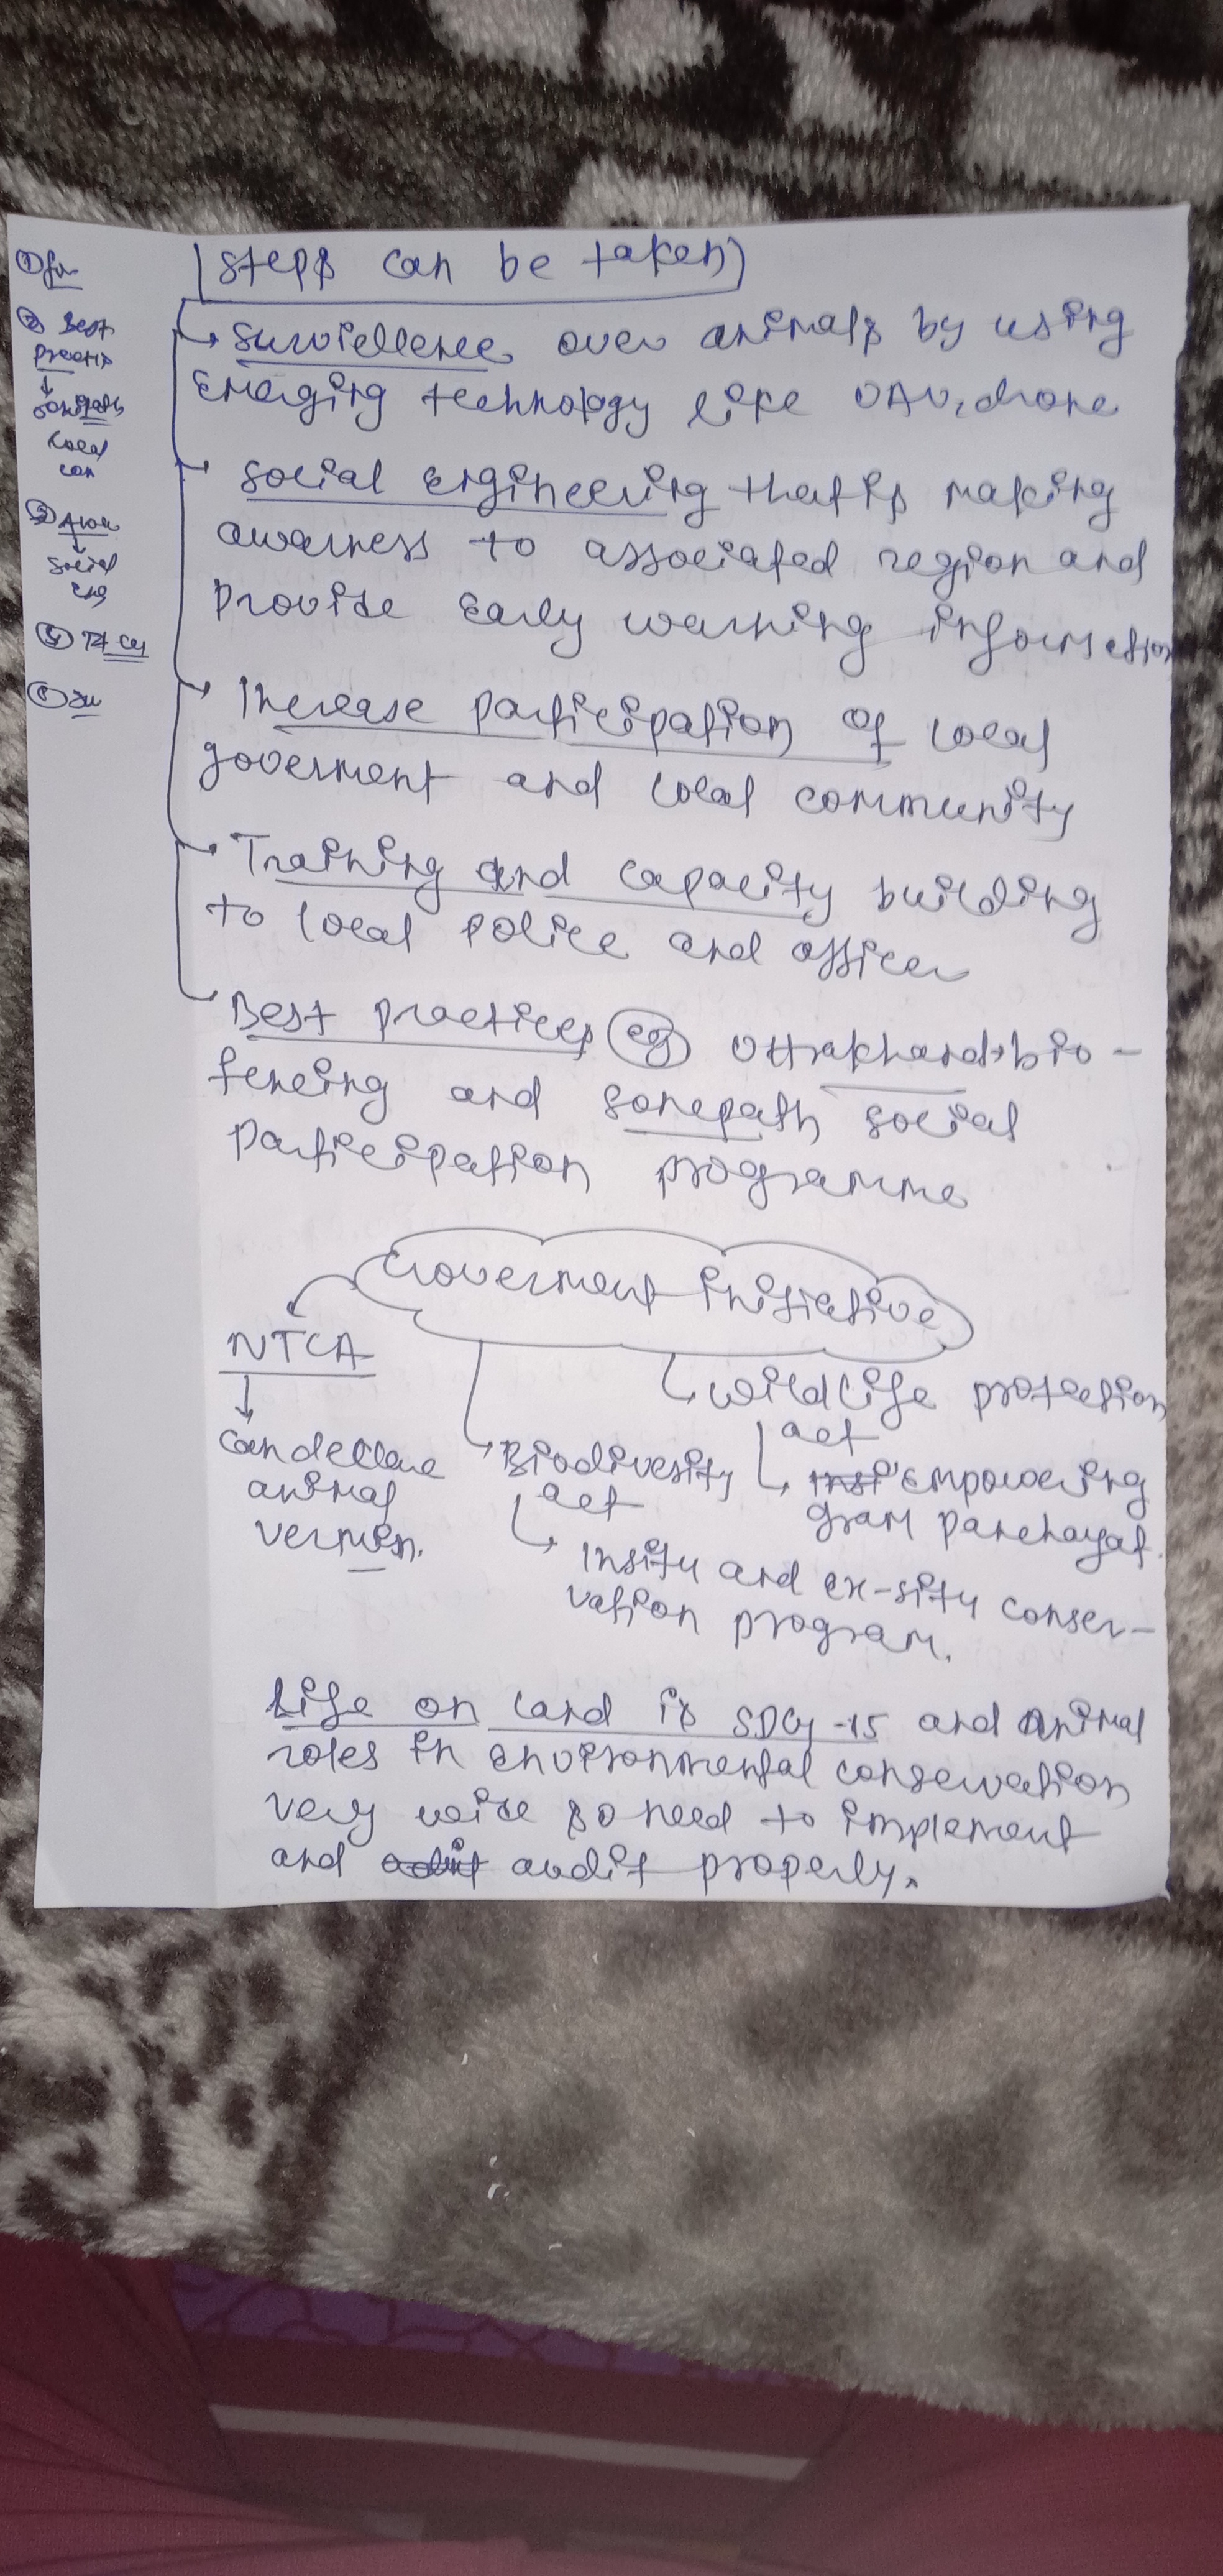 Steps can be taken
Surviellence over animals by using
Emerging technology like UAV, drone
Social engineering that is making
awarness to associated region and
provide early warning information
Increase participation of local
goverment and local community
Training and capacity building
to local police and officer
Best practices eg Uttrakhand bio-
fencing and sonepath social
participation programme
Goverment initiative
NTCA
can declare
animal
vermin.
Biodiversity
act
Insitu and ex-situ conser-
vation program.
wildlife protection
act
Empowering
gram panchayat.
Life on land is SDG-15 and animal
roles in environmental conservation
very wide so need to implement
and audit properly.
① 
② Best
practis
local
com
③
social
eng
④